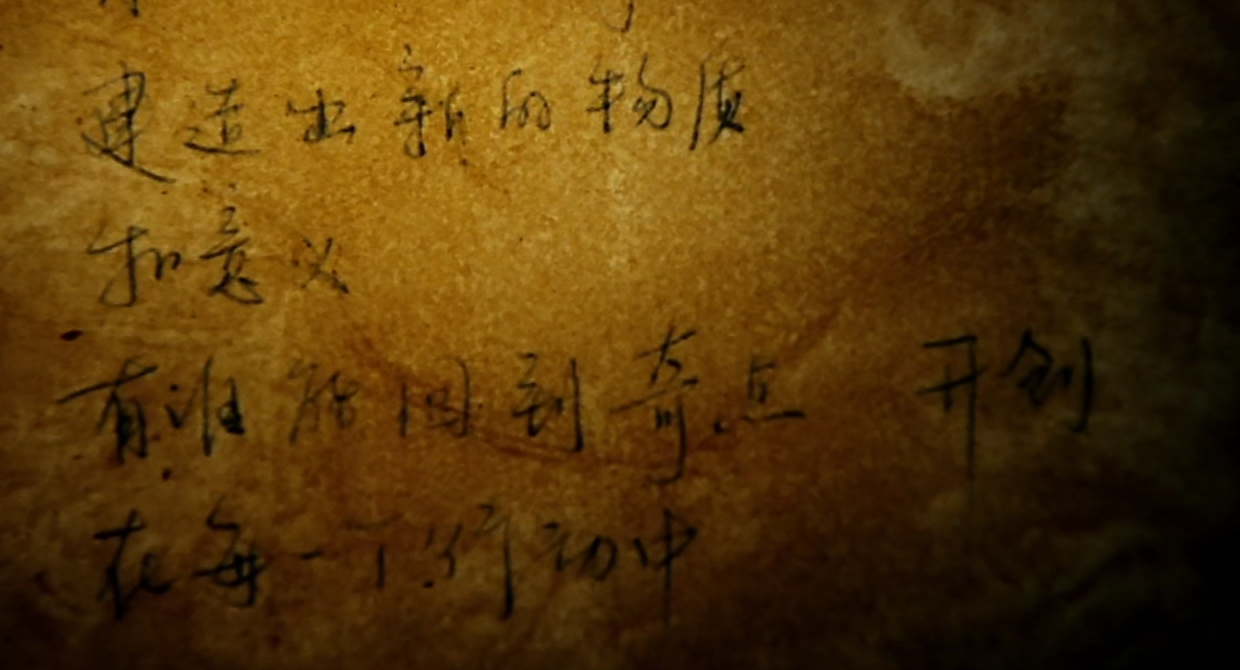 建造出新的物质
和意义
有谁能回到奇点 开创
在每一个行动中